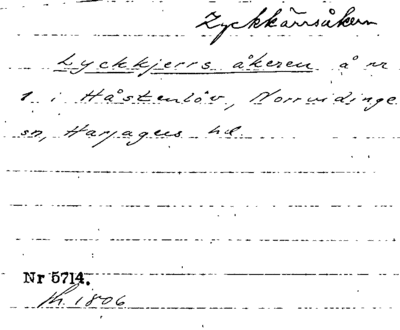 Lyckkärrsåkern
Lyckkjerrs åkeren å nr
1 i Håstenlöv, Norrvidinge
sn, Harjagers hd.
Nr 5714.
h 1806